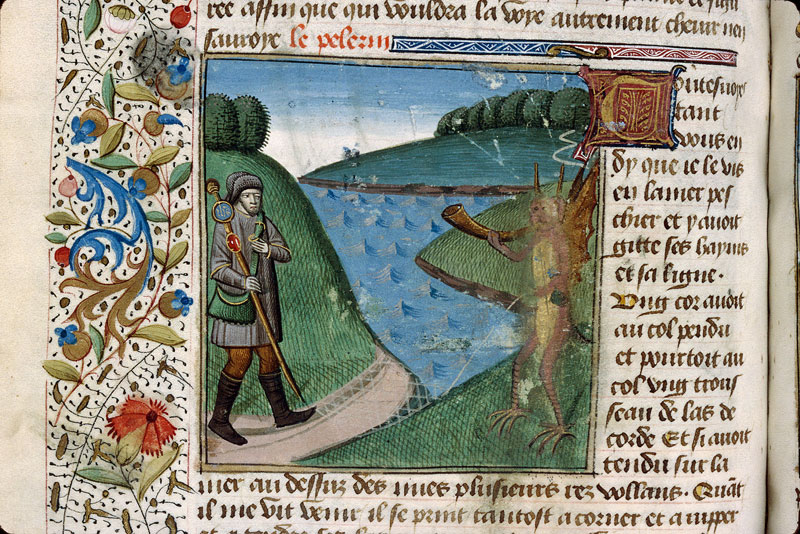 ree affin que qui vouldra la voye autrement
sauroye le pelerin
Toutesuoye
tant
vous en
dy que ie le vis
en la mer pes
chier et y auoit
gitte ses hayms
et sa ligne.
Vng cor auoit
au col pendu
et portoit au
col vng trous
seau de las de
corde Et si auoit
tendu sur la
mer au dessus des nues plusieurs rez vollans. Quāt
il me vit venir il se print tantost a corner et a